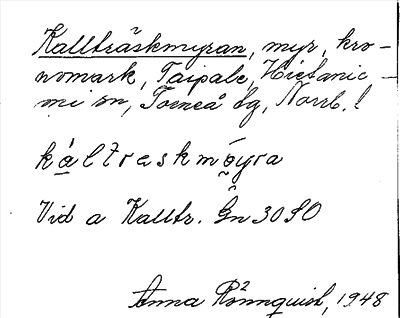 Kallträskmyran, myr, kro-
nomark, Taipale, Hietanie-
mi sn, Torneå tg, Norrb. l
káltraskmøyra
Vid a Kalltr. Gn 30 SO
Anna Rönnquist, 1948